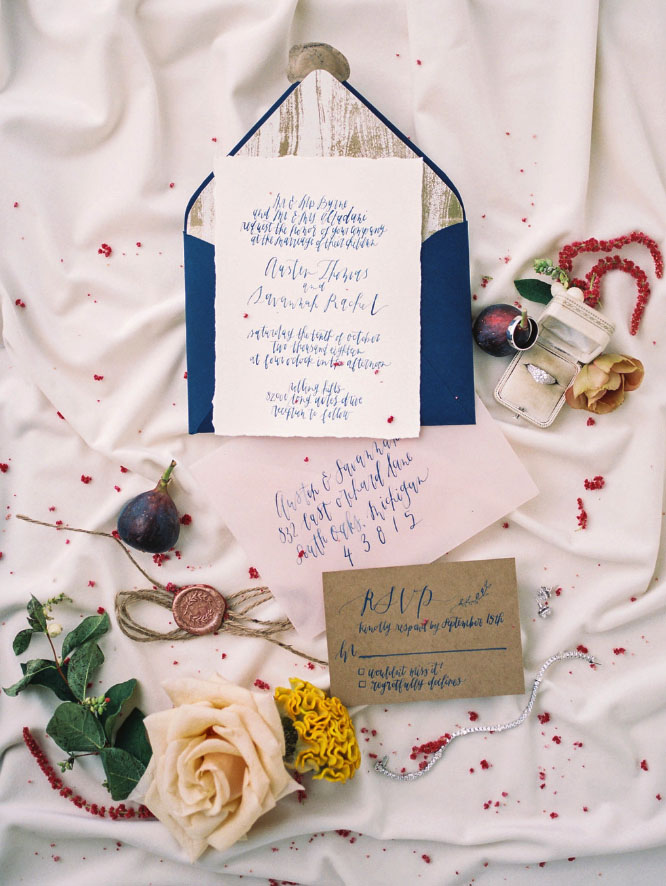 Mr & Mrs Byrne
and Mr & Mrs
request the honor of your company
at the marriage of their children
Austin Thomas
and
Savannah Rachel
saturday the tenth of october
two thousand eighteen
at four o'clock in the afternoon
rolling hills
long acres drive
reception to follow
Austin & Savannah
832 East orchard lane
South Oaks, Michigan
43015
RSVP
kindly respond by September 15th
M
wouldn't miss it!
regretfully declines